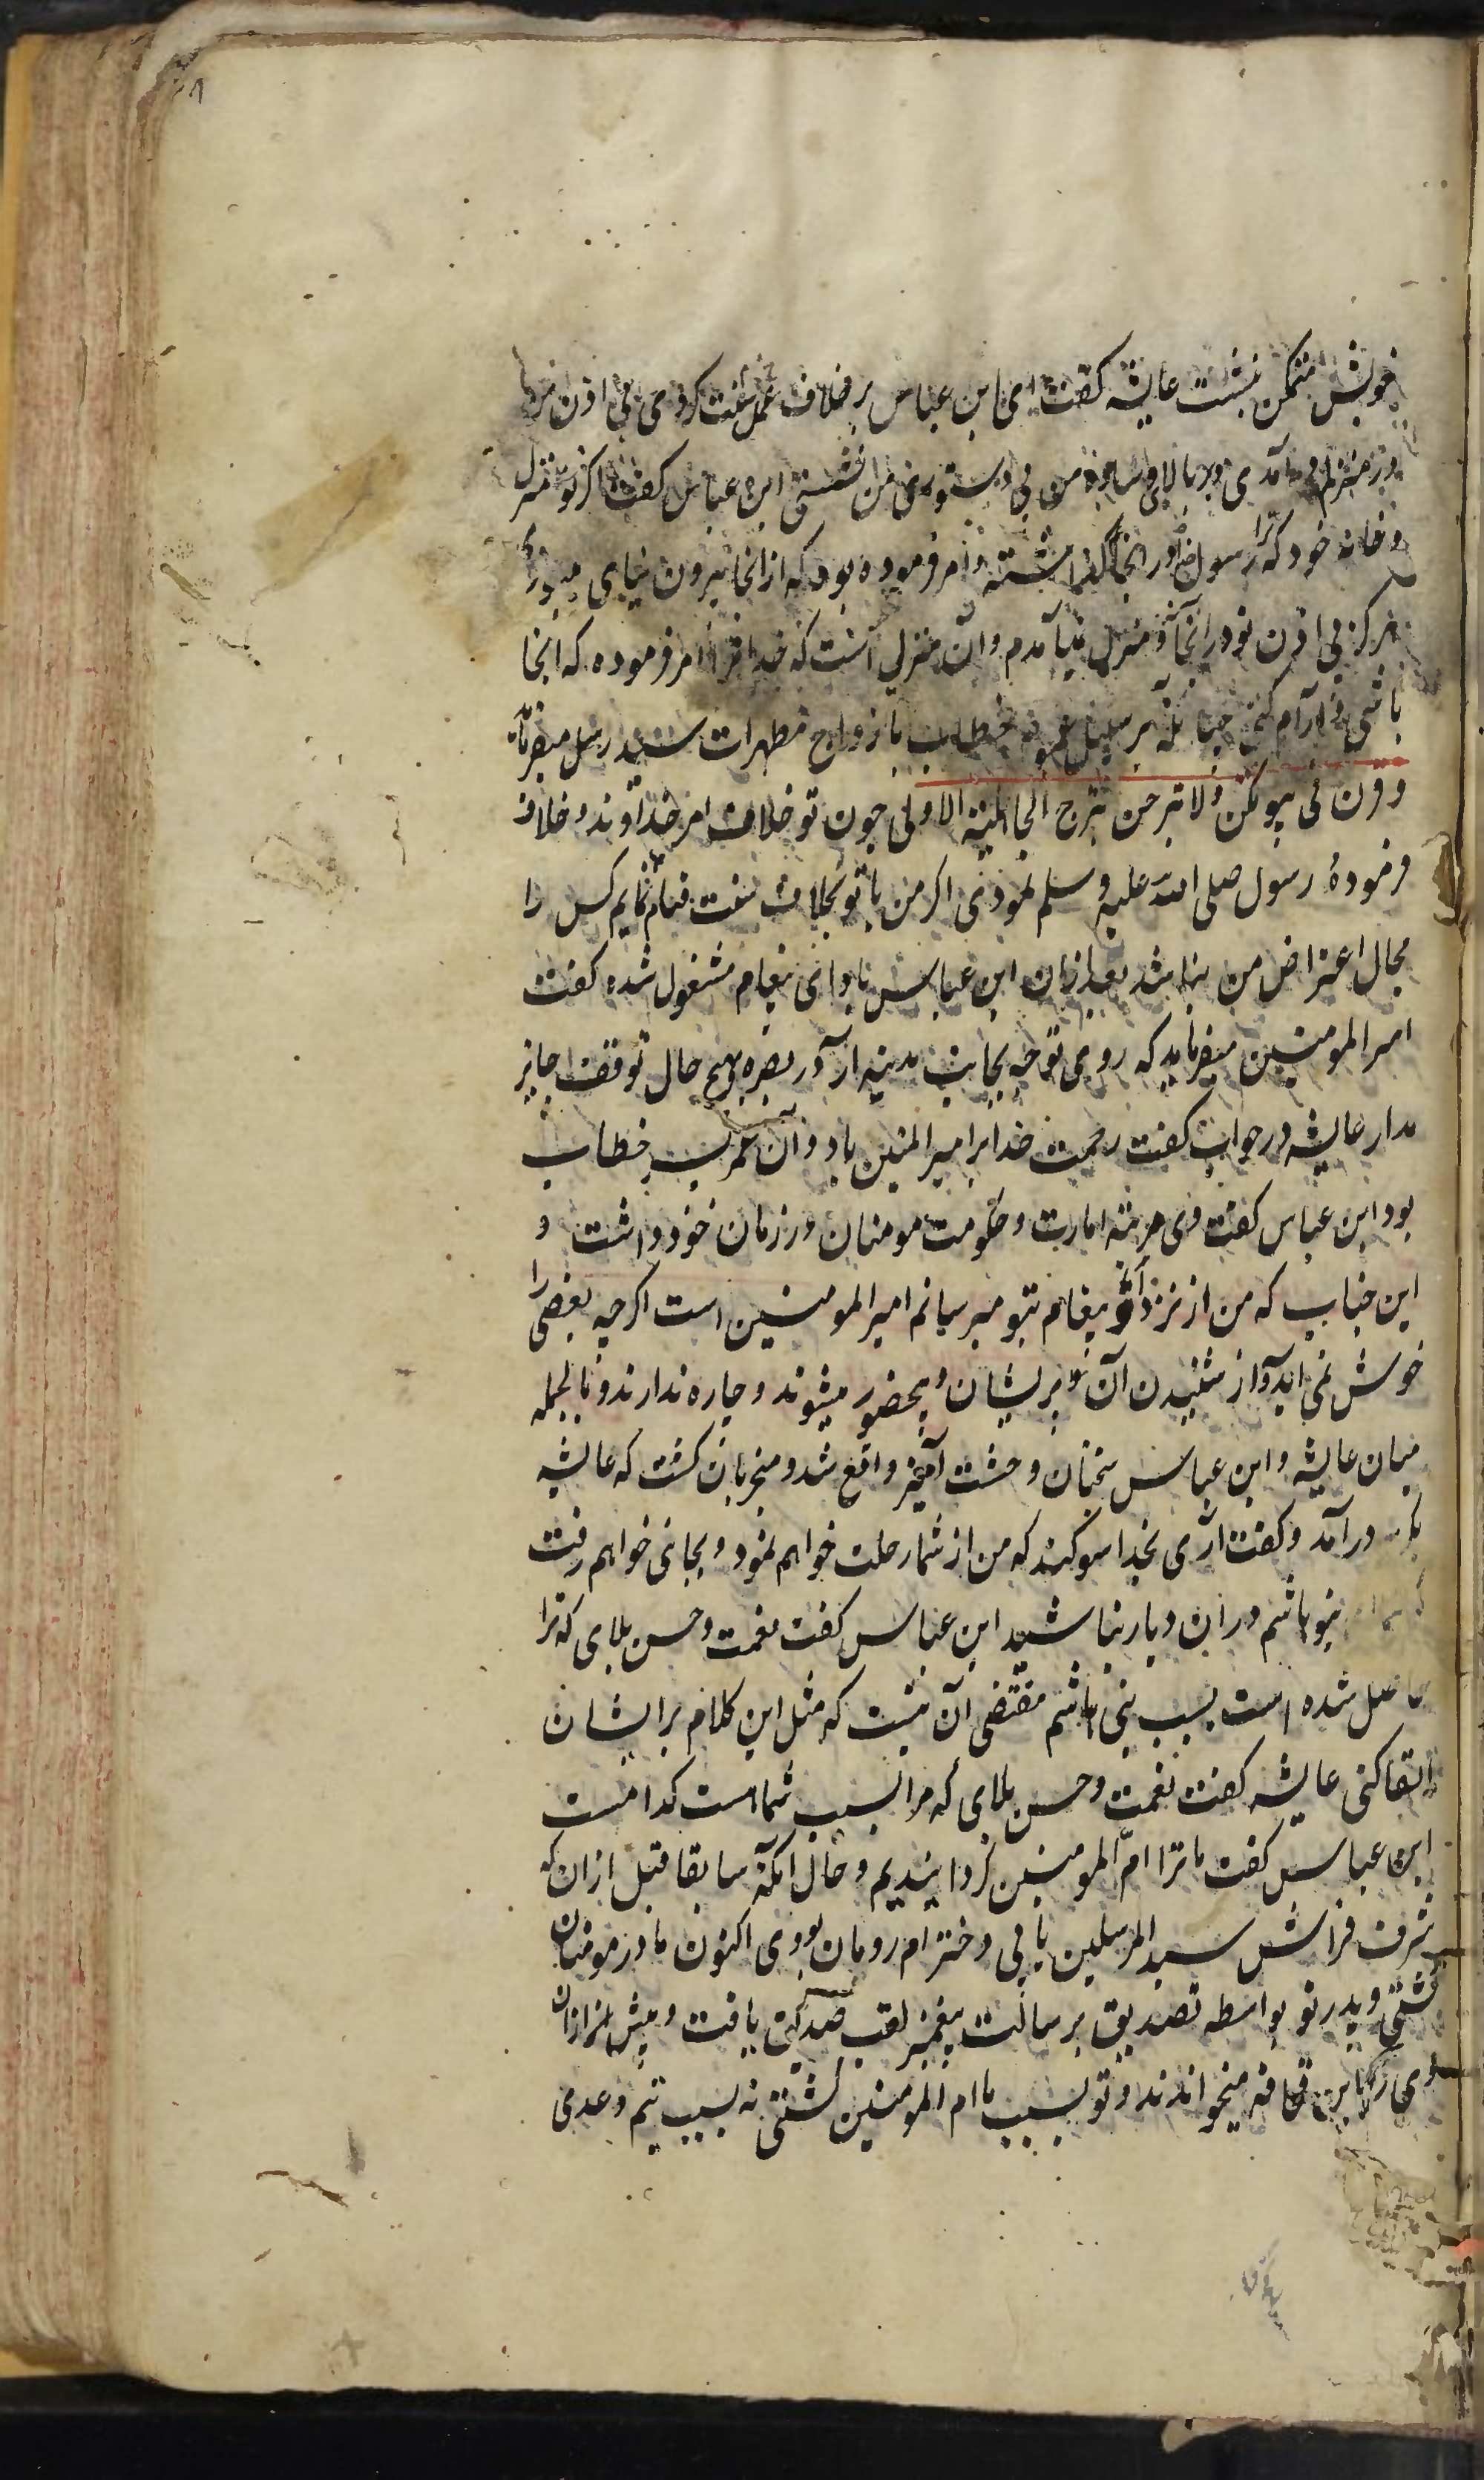 خویش متمکن بنشست عایشه گفت ای ابن عباس بر خلاف سنت عمل کردی بی اذن من
در منزلم در آمدی و بر بالای وساده من بی دستوری من نشستی ابن عباس گفت اگر تو منزل
و خانه خود که ترا رسول خدا در انجا گذاشته و امر فرموده بود که از انجا بیرون نیایی میبودی
هرگز بی اذن تو در انجا و منزل نیامدم و آن منزل آنست که خدا ترا امر فرموده که انجا
باشی و آرام کنی چنانکه بر سبیل خطاب بازواج مطهرات سید رسل میفرماید
وقرن فی بیوتکن ولا تبرجن تبرج الجاهلیة الاولی چون تو خلاف امر خداوند و خلاف
فرموده رسول صلی الله علیه وسلم نمودی اگر من با تو بخلاف سنت قیام نمایم کس را
مجال اعتراض من نباشد بعد ازان ابن عباس بادای پیغام مشغول شده گفت
امیر المومنین میفرماید که روی توجه بجانب مدینه آر و در بصره بهیچ حال توقف جایز
مدار عایشه در جواب گفت رحمت خدا بر امیر المومنین باد و آن عمر بن خطاب
بود ابن عباس گفت وی مرتبه امارت و حکومت مومنان در زمان خود داشت و
این جناب که من از نزد او پیغام بتو میرسانم امیر المومنین است اگرچه بعضی را
خوش نمی آید و از شنیدن آن پریشان و بیحضور میشوند و چاره ندارند و بالجمله
میان عایشه و ابن عباس سخنان وحشت آمیز واقع شد و منجر بان گشت که عایشه
درآمد و گفت آری بخدا سوگند که من از شما رحلت خواهم نمود و بجائی خواهم رفت
بنو هاشم در ان دیار نباشید ابن عباس گفت نعمت و حسن بلای که ترا
حاصل شده است بسبب بنی هاشم مقتضی آن نیست که مثل این کلام بر ایشان
القا کنی عایشه گفت نعمت و حسن بلای که مرا بسبب شماست کدامست
ابن عباس گفت ما ترا ام المومنین گردانیدیم و حال آنکه سابقا قبل از ان که
شرف فراش سید المرسلین یابی دختر ام رومان بودی اکنون مادر مومنان
گشتی و پدر تو بواسطه تصدیق برسالت پیغمبر لقب صدیق یافت و پیش از ان
وی را ابن قحافه میخواندند و تو بسبب ما ام المومنین گشتی نه بسبب تیم و عدی